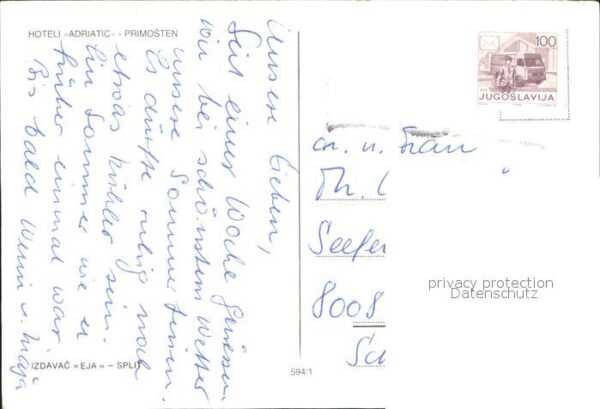 HOTELI »ADRIATIC« - PRIMOŠTEN
Unsere Lieben,
Seit einer Woche geniessen
wir bei schönstem Wetter
unsere Sommerferien.
Es dürfte ruhig noch
etwas kühler sein.
Ein Sommer wie er
früher einmal war.
Bis bald Werni u. Maja
IZDAVAČ »EJA« – SPLIT
594/1
100
JUGOSLAVIJA
Fam. u. Frau
Th.
Seefe
8008
Sc
privacy protection
Datenschutz